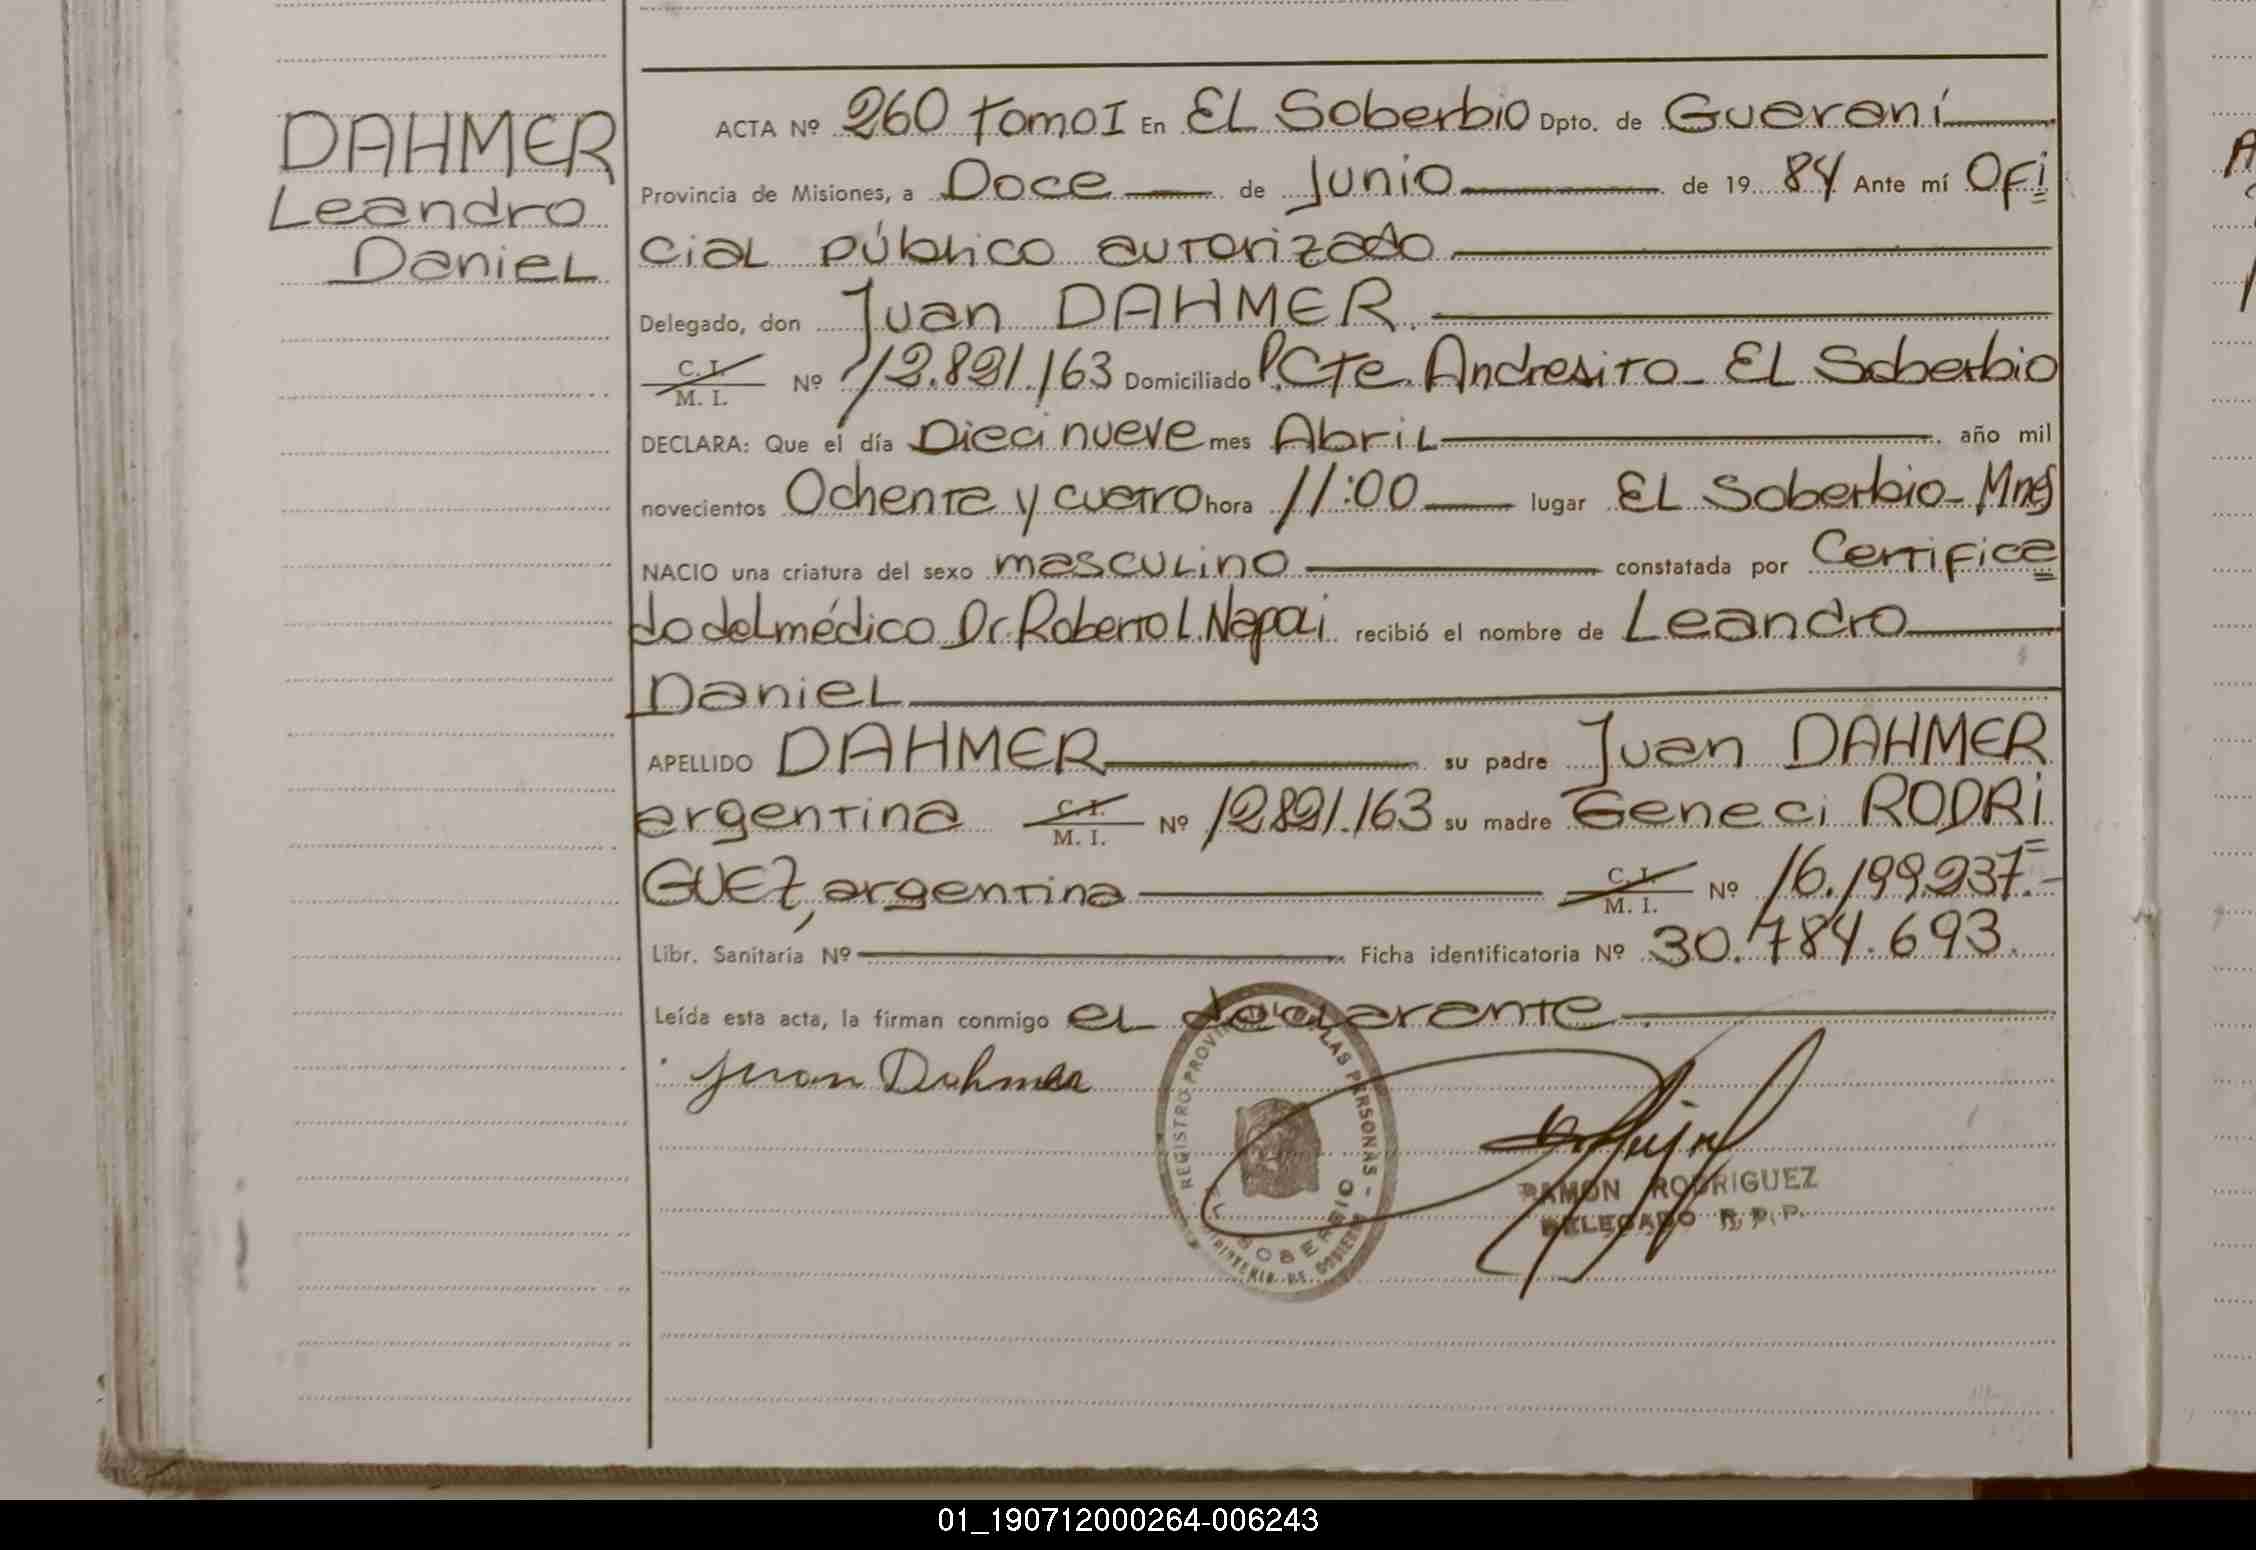 DAHMER
Leandro
Daniel
ACTA Nº 260 Tomo I En EL Soberbio Dpto. de Guaraní
Provincia de Misiones, a Doce de Junio de 19 84 Ante mí Ofi
cial público autorizado
Delegado, don Juan DAHMER.
C. I.
M. I. Nº 12.821.163 Domiciliado Pcte. Andresito - EL Soberbio
DECLARA: Que el día Dieci nueve mes Abril año mil
novecientos Ochenta y cuatro hora 11:00 lugar EL Soberbio - Mnes
NACIO una criatura del sexo masculino constatada por Certifica
do del médico Dr. Roberto L. recibió el nombre de Leandro
Daniel
APELLIDO DAHMER su padre Juan DAHMER
argentina C. I.
M. I. Nº 12.821.163 su madre Geneci RODRI
GUEZ, argentina C. I.
M. I. Nº 16.199.237.-
Libr. Sanitaría Nº Ficha identificatoria Nº 30.784.693.
Leída esta acta, la firman conmigo el declarante
Juan Dahmer
REGISTRO PROVINCIAL DE LAS PERSONAS -
EL SOBERBIO
RAMON RODRIGUEZ
DELEGADO R.P.P.
01_190712000264-006243